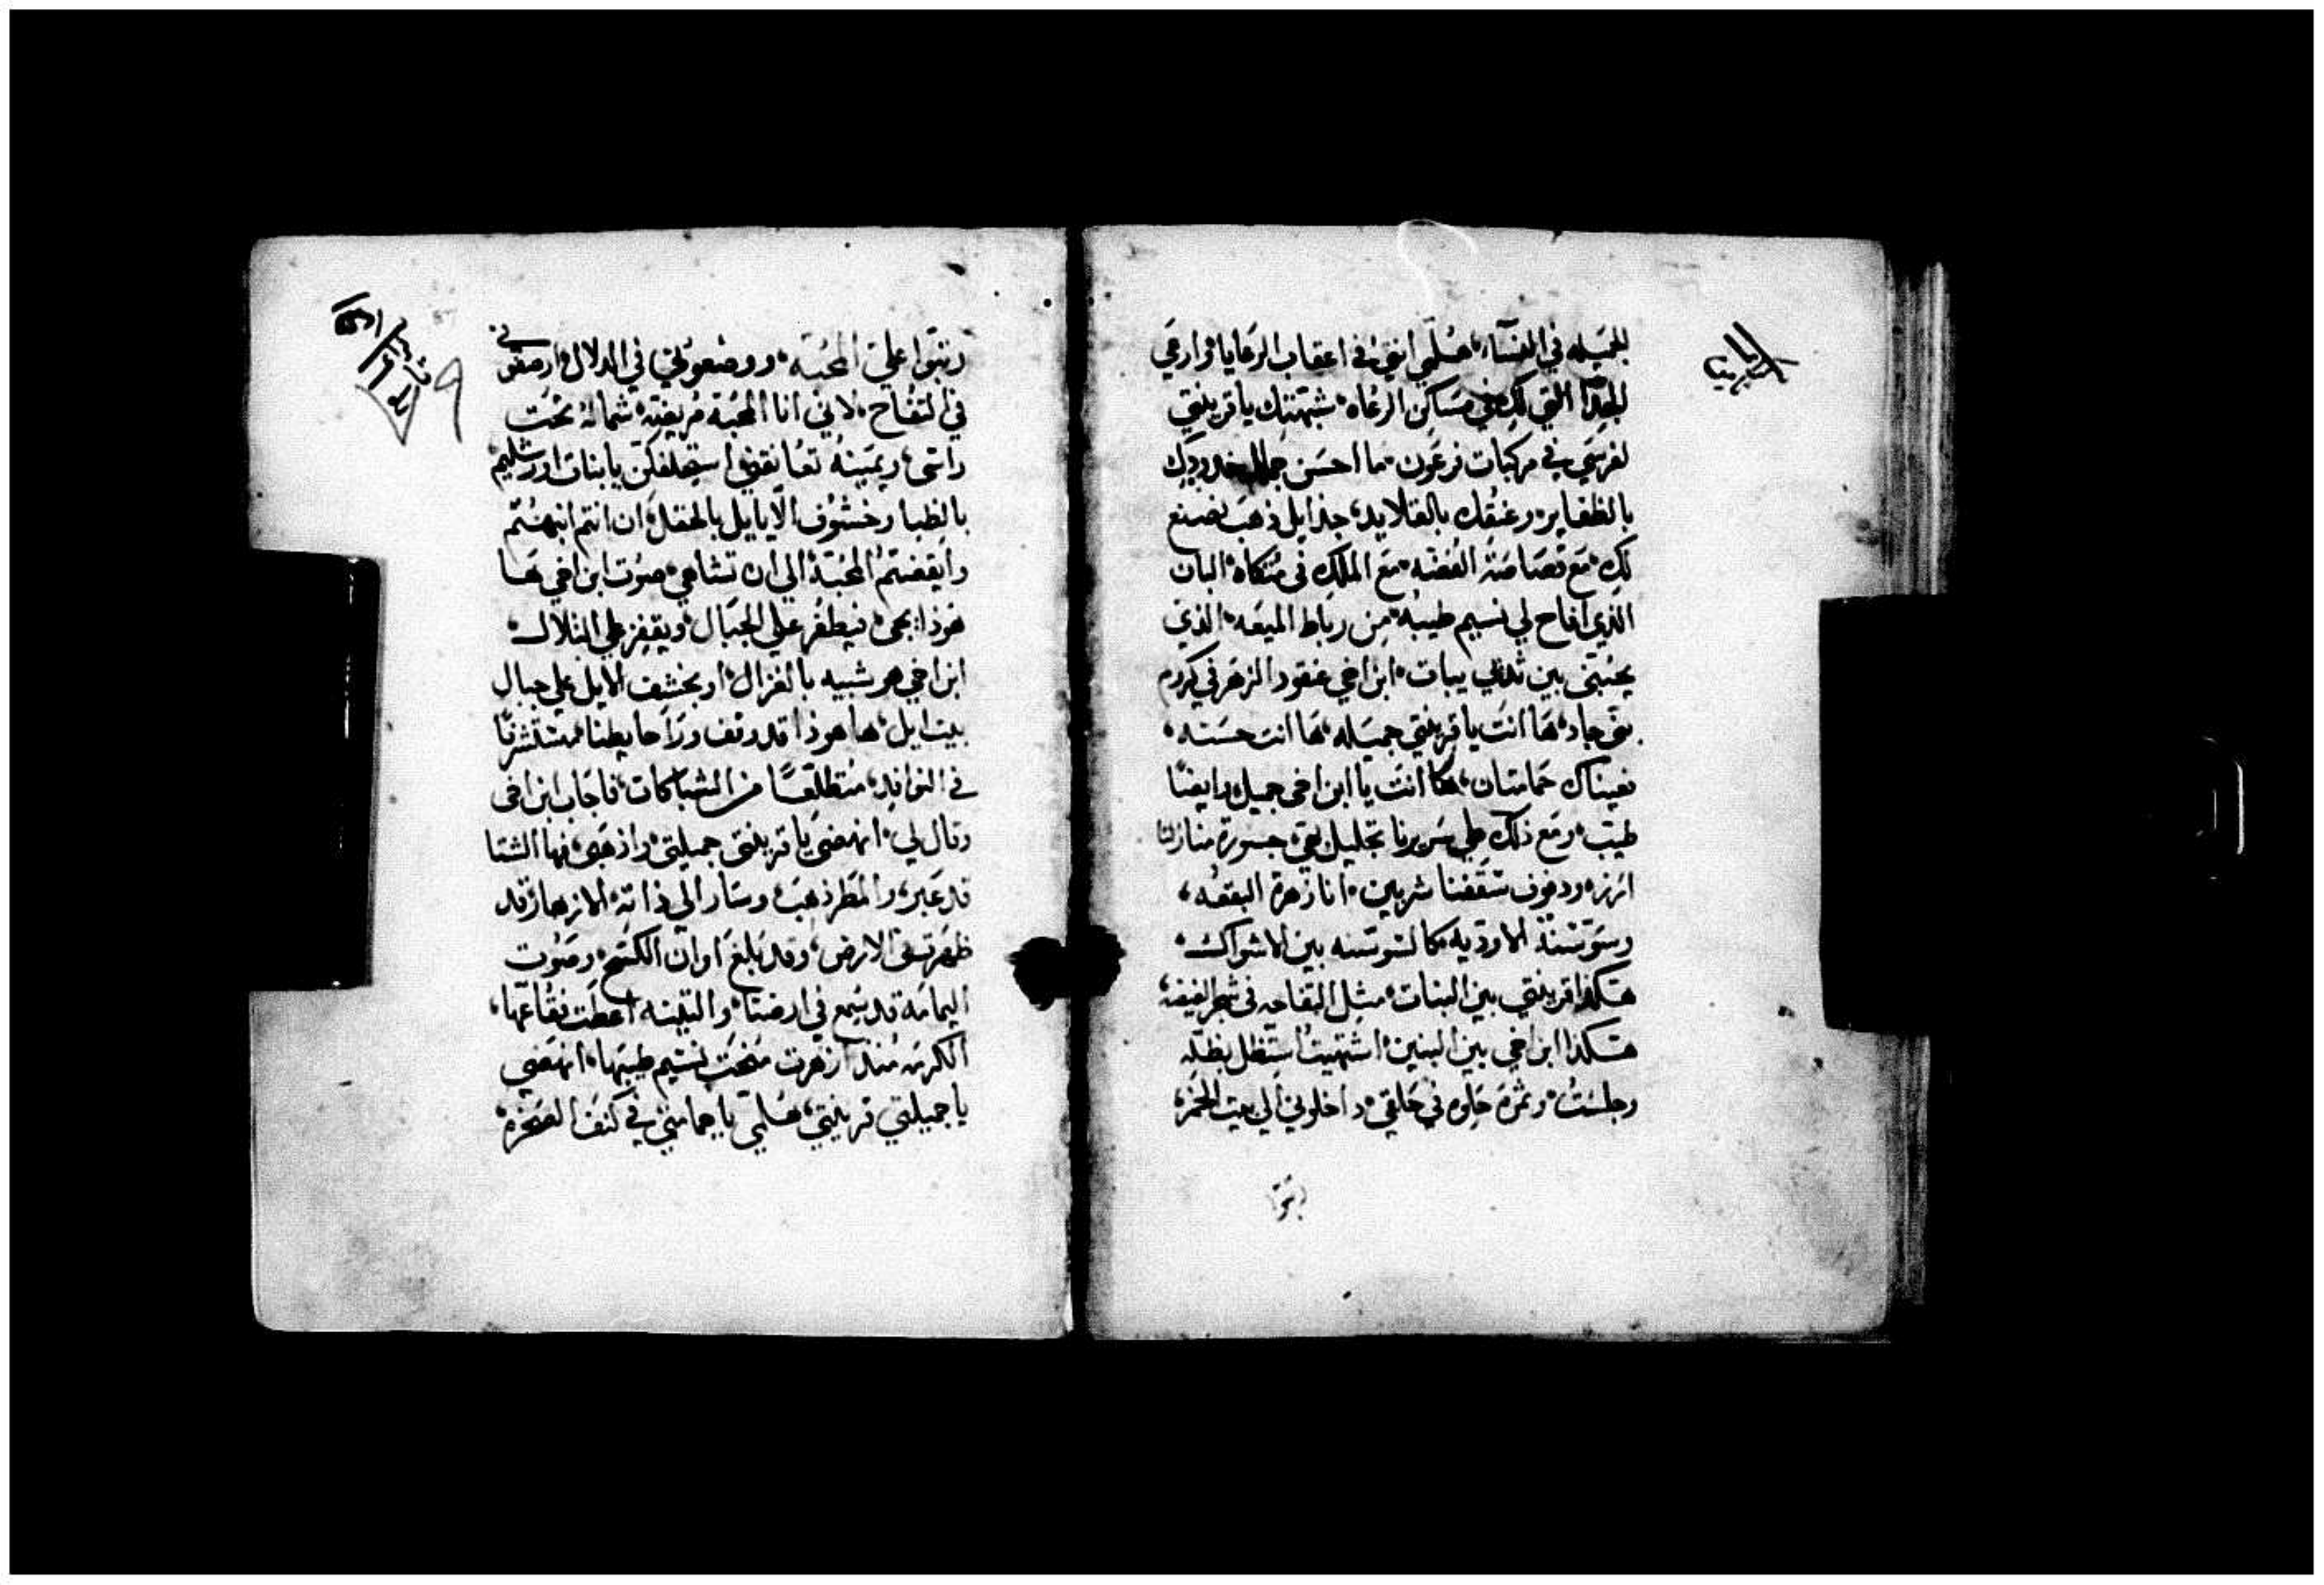 الجميله في النساء، هلمي انتي في اعقاب الرعايا وارعي
الجدا التي لك في مساكن الرعاه، شبهتك يا قرينتي
لفرسي في مركبات فرعون، ما احسن جمال خدودك
بالظفاير، وعنقك بالقلايد، جدايل ذهب نصنع
لك، مع قصاصة الفضه، مع الملك في متكاه، البان
الذي افاح لي نسيم طيبه، من رباط الميعه، الذي
بين ثديي يبات، ابن اخي عنقود الزهر في كروم
بني جاد، ها انت يا قرينتي جميله، ها انت حسنه،
فعيناك حمامتان، ها انت يا ابن اخي جميل وايضا
طيب، ومع ذلك علي سريرنا تجليل جسورة منازلنا
ارزه، ودفوف سقفنا شربين، انا زهرة البقعه،
وسوسنة الاوديه، كالسوسنه بين الاشواك،
هكذا قرينتي بين البنات، مثل التفاحه في شجر الغيضه،
هكذا ابن اخي بين البنين، اشتهيت استظل بظله
وجلست، وثمره حلوه في حلقي، ادخلوني الي بيت الخمر،
رتبوا علي المحبة، ووضعوني في الدلال، ارصفوني
في التفاح، لاني انا المحبة مريضة، شماله تحت
راسي، ويمينه تعانقني، استحلفكن يا بنات اورشليم،
بالظبا وخشوف الايايل بالحقل، ان انتم انبهتم
وايقضتم المحبة الي ان تشاهي، صوت ابن اخي ها
هوذا يجي، فيطفر علي الجبال، ويقفز علي التلال،
ابن اخي هو شبيه بالغزال، او بخشف الايل علي جبال
بيت ايل، ها هوذا قد وقف ورا حايطنا، مستشرفا
في النوافد، متطلعا من الشباكات، فاجاب ابن اخي
وقال لي، انهضي يا قرينتي جميلتي، واذهبي، فها الشتا
قد عبر، والمطر ذهب، وسار الي ذاته، الازهار قد
ظهرت في الارض، وقد بلغ اوان الكسح، وصوت
اليمامة قد سمع في ارضنا، والتينه اعطت فقاعها،
الكرمه منذ ازهرت منحت نسيم طيبها، انهضي
يا جميلتي قرينتي، هلمي يا حمامتي في كنف الصخره،